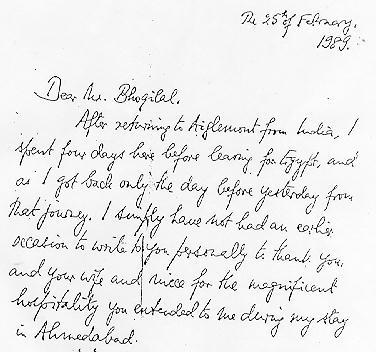 The 25th of February.
1989.
Dear Mr. Bhogilal.
After returning to Aiglemont from India, I
spent four days here before leaving for Egypt, and
as I got back only the day before yesterday from
that journey. I simply have not had an earlier
occasion to write to you personally to thank you,
and your wife and niece for the magnificent
hospitality you extended to me during my stay
in Ahmedabad.